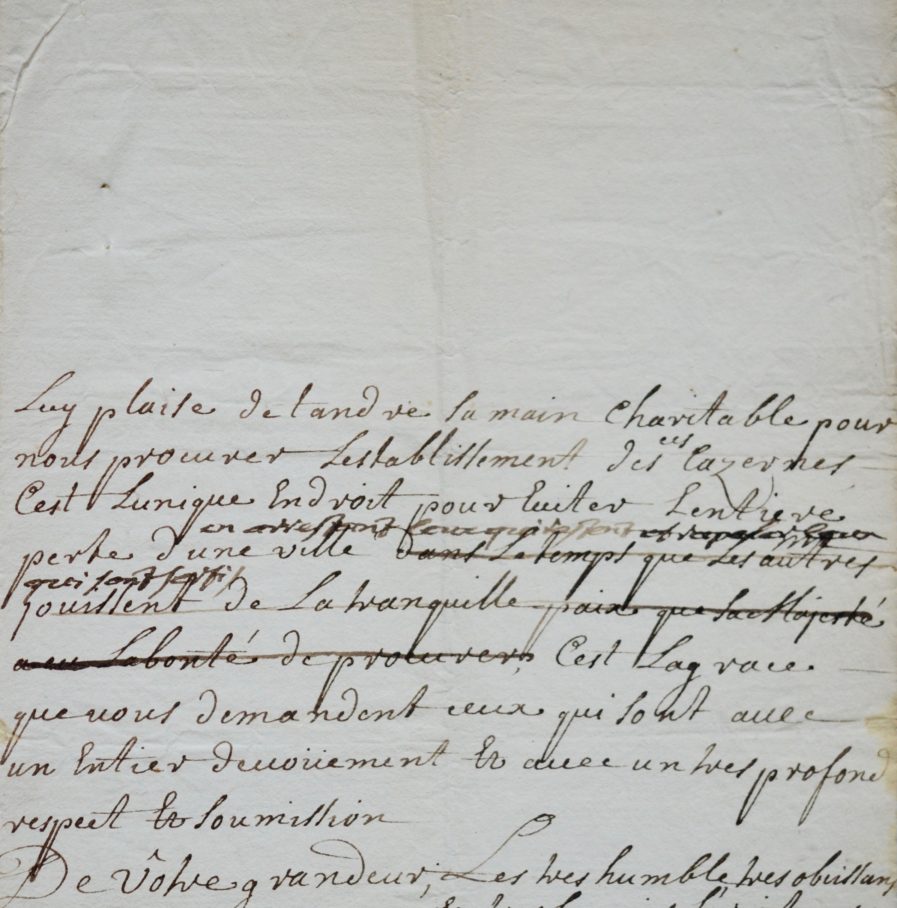 Luy plaise detandre sa main Charitable pour
nous procurer Lestablissement des Cazernes
ces
Cest Lunique Endroit pour Euiter Lentiere
en arrestant ceux qui restent
perte d'une ville dans Le temps que Les autres
qui sont
jouissent de La tranquille paix que Sa Majesté
a eu La bonté de procurer, Cest La grace
que uous demandent ceux qui sont auec
un Entier deuoüement Et auec un tres profond
respect Et Soumission
De Vôtre grandeur, Les tres humble, tres obeissan